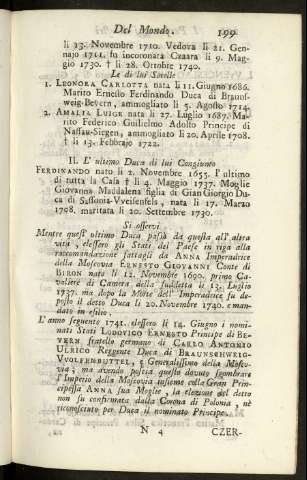 Del Mondo. 199
li 23. Novembre 1710. Vedova li 21. Gen-
najo 1711. fu incoronata Czaara li 9. Mag-
gio 1730. † li 28. Ottobre 1740.
Le di lui Sorelle
1. LEONORA CARLOTTA nata li 11. Giugno 1686.
Marito Ernesto Ferdinando Duca di Braunf-
weig-Bevern, ammogliato li 5. Agosto 1714.
2. AMALIA LUIGIA nata li 27. Luglio 1687. Ma-
rito Federico Guilielmo Adolfo Principe di
Nassau-Siegen, ammogliato li 20. Aprile 1708.
† li 13. Febbrajo 1722.
II. L'ultimo Duca di lui Congiunto
FERDINANDO nato li 2. Novembre 1655. l'ultimo
di tutta la Casa † li 4. Maggio 1737. Moglie
Giovanna Maddalena figlia di Gian Giorgio Du-
ca di Sassonia-Vveisenfels, nata li 17. Marzo
1708. maritata li 20. Settembre 1730.
Si osservi
Mentre quest' ultimo Duca passò da questa all' altra
vita, elessero gli Stati del Paese in riga alla
raccomandazione fattagli da ANNA Imperadrice
della Moscovia ERNESTO GIOVANNI Conte di
BIRON nato li 12. Novembre 1690. primo Ca-
valiere di Camera della suddetta li 13. Luglio
1737. ma dopo la Morte dell' Imperadrice fu de-
posto il detto Duca li 20. Novembre 1740. e man-
dato in esilio.
L'anno seguente 1741. elessero li 14. Giugno i nomi-
nati Stati LODOVICO ERNESTO Principe di BE-
VERN fratello germano di CARLO ANTONIO
ULRICO Reggente Duca di BRAUNSCHWEIG-
VVOLFFENBUTTEL, e Generalissimo della Mosco-
via; ma avendo poscia questo dovuto sgombrare
l'Imperio della Moscovia insieme colla Gran Prin-
cipessa ANNA sua Moglie, la elezione del detto
non fu confirmata dalla Corona di Polonia, nè
riconosciuto per Duca il nominato Principe.
N 4 CZER-